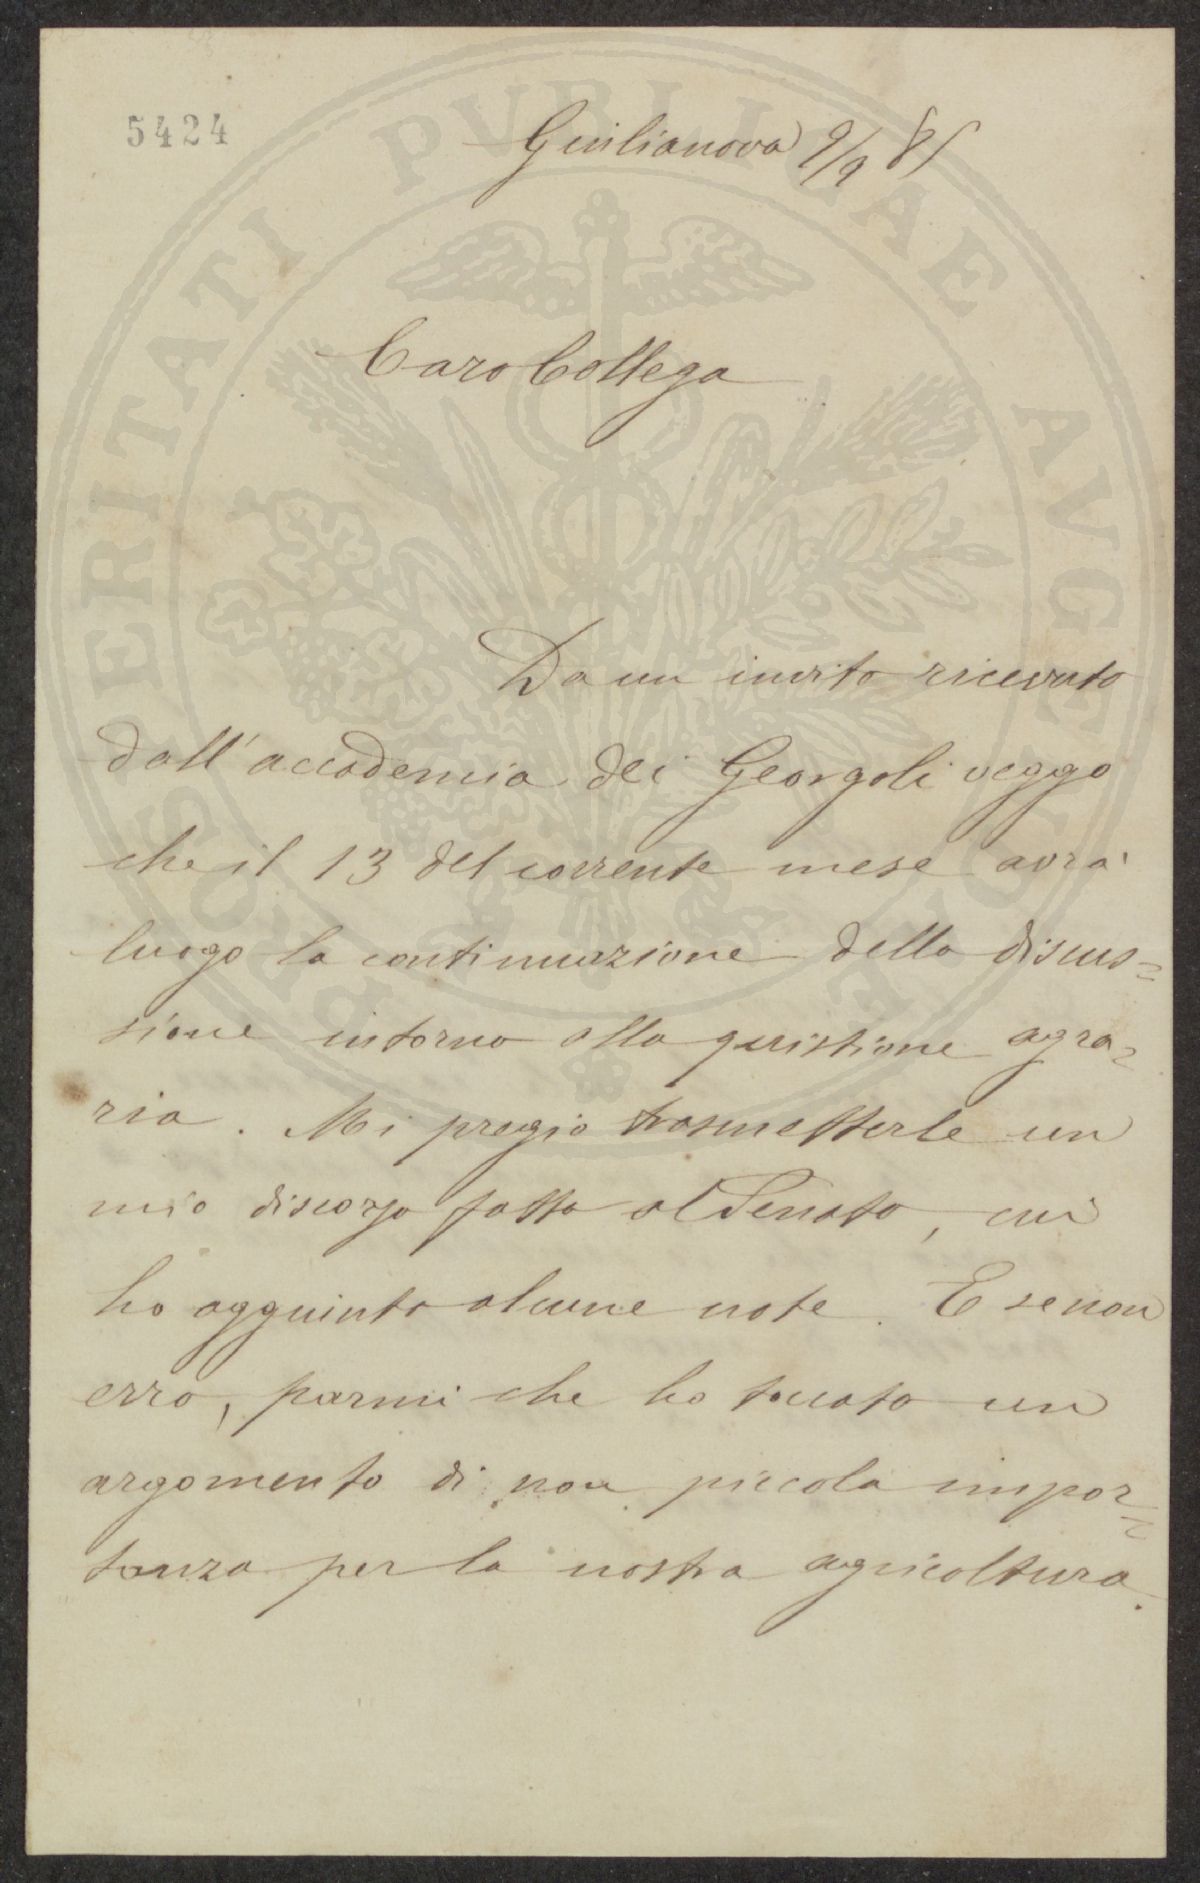 5424
Giulianova 9/9 85
Caro Collega
Da un invito ricevuto
dall'accademia dei Georgoli veggo
che il 13 del corrente mese avrà
luogo la continuazione della discus=
sione intorno alla quistione agra=
ria. Mi pregio trasmetterle un
mio discorso fatto al Senato, cui
ho aggiunto alcune note. E se non
erro, parmi che ho toccato un
argomento di non piccola impor=
tanza per la nostra agricoltura.
PROSPERITATI PVBLICAE AVGENDAE